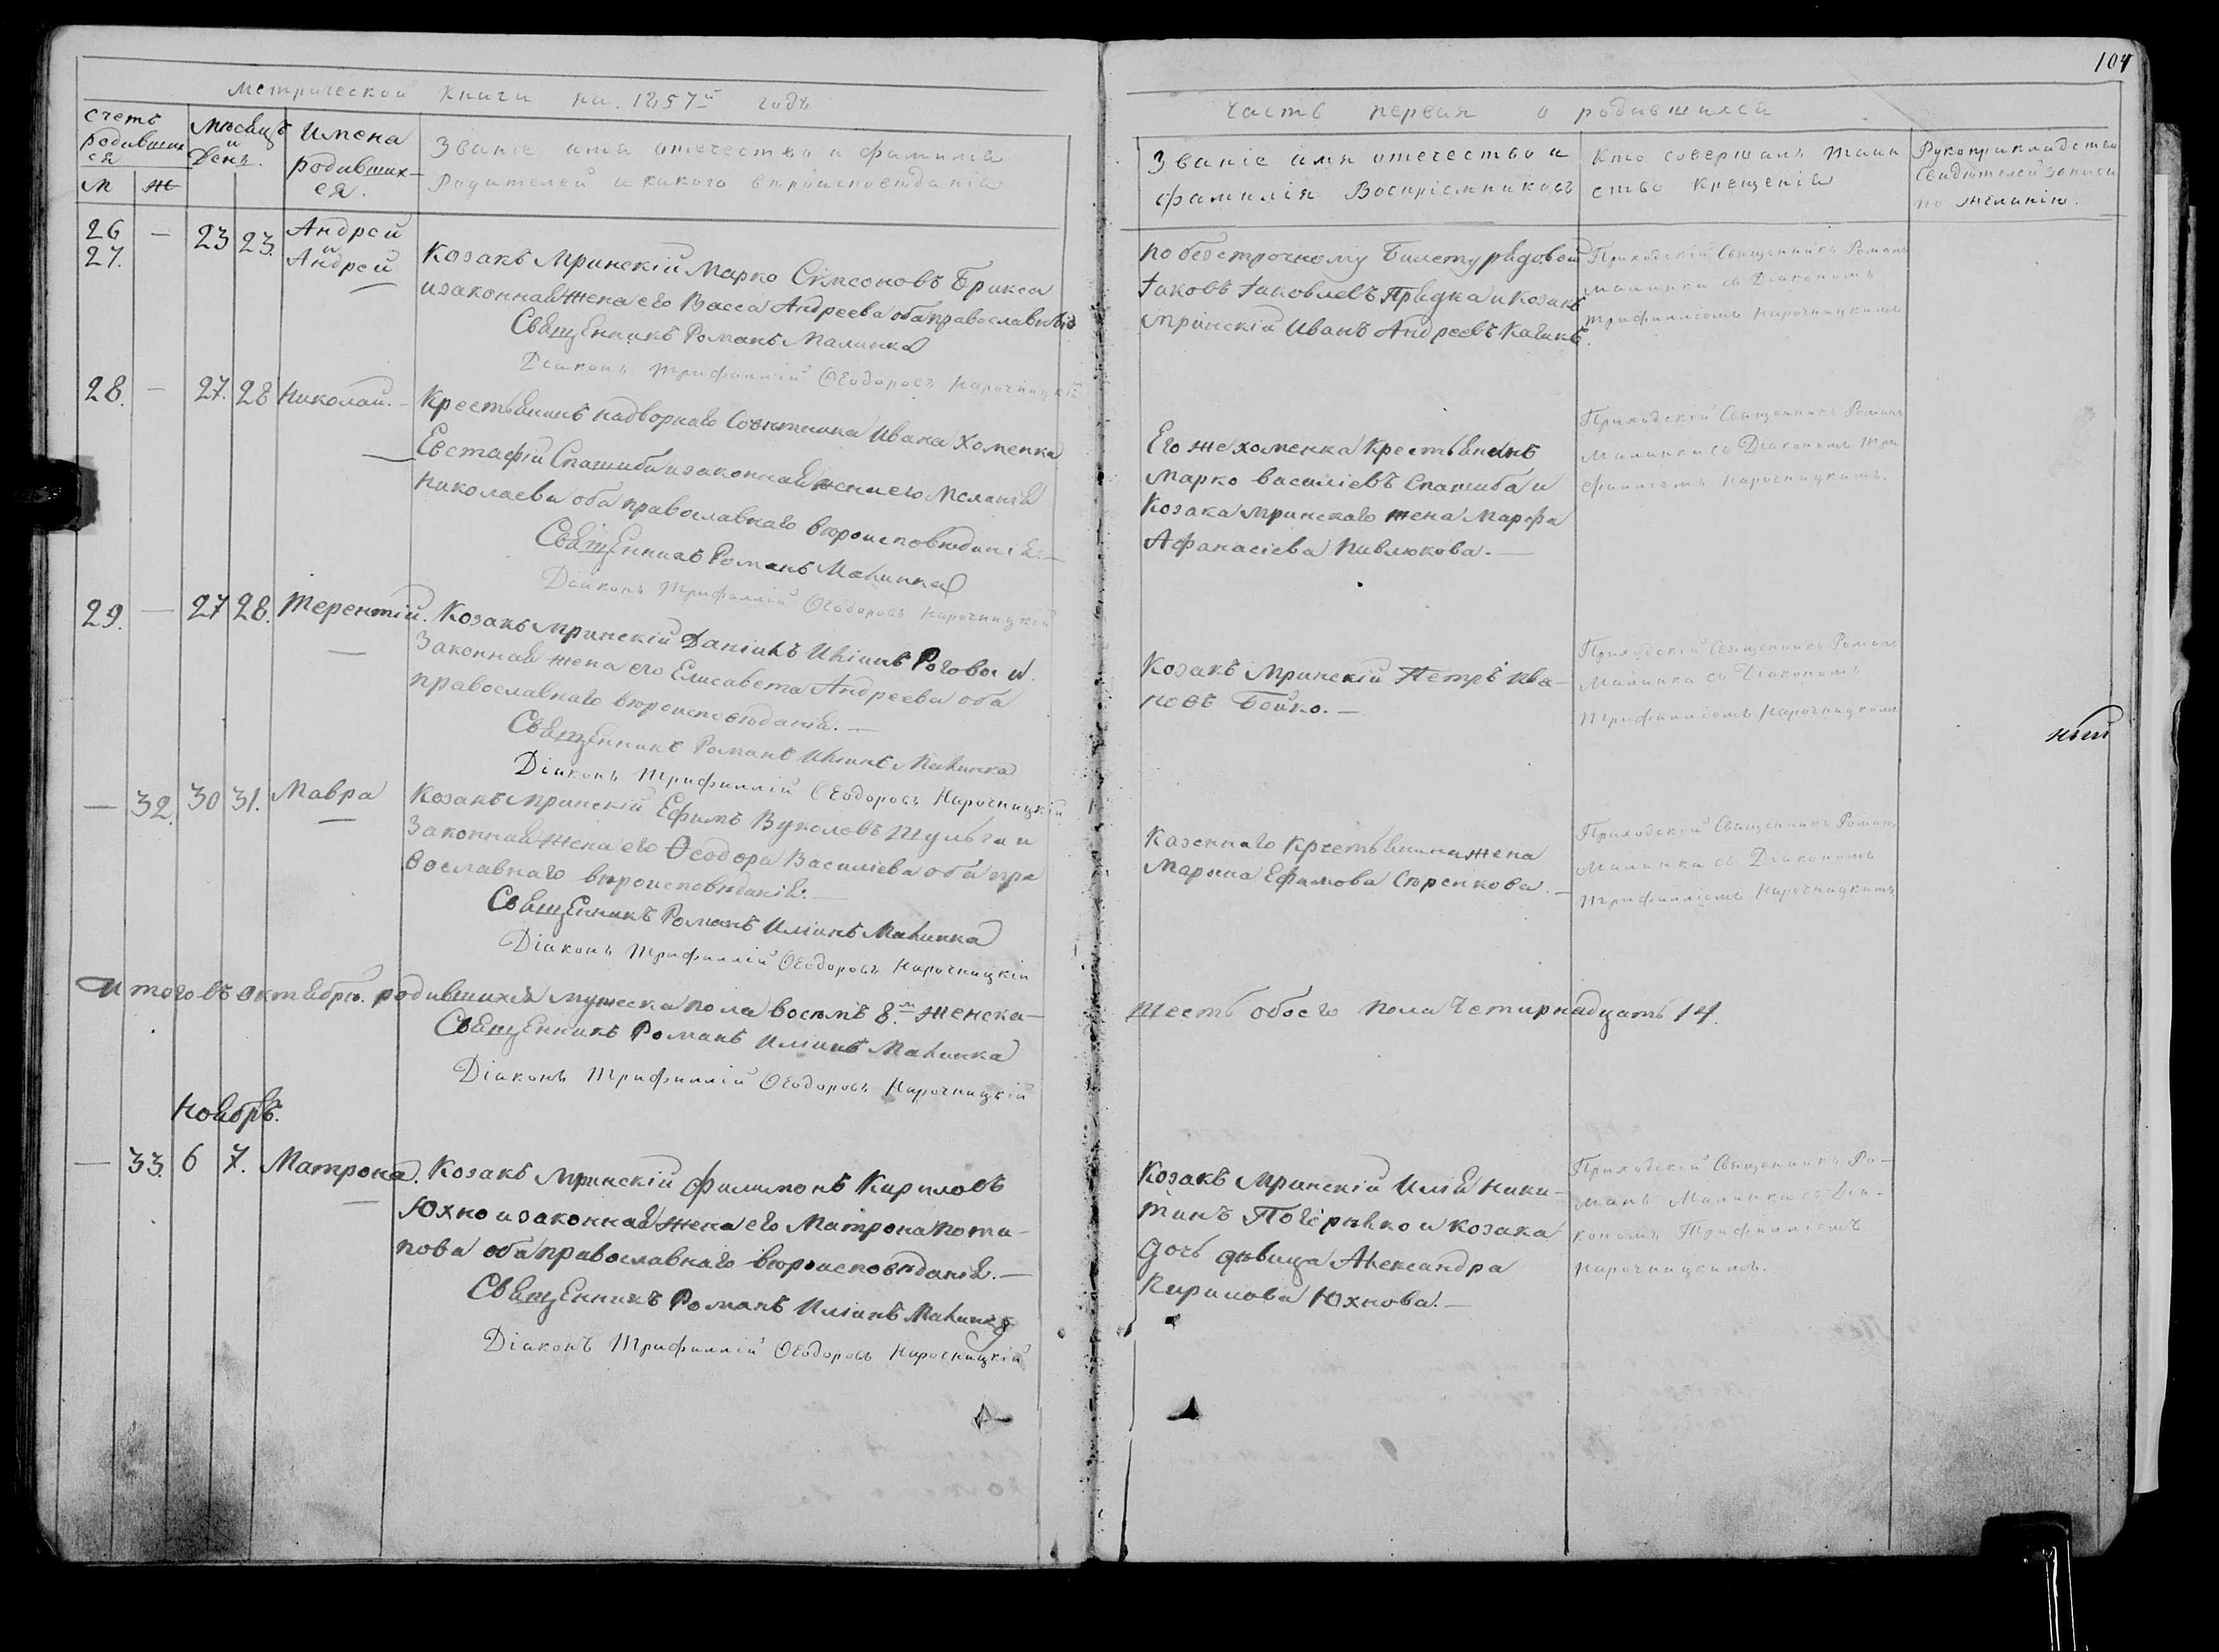 104
Метрической книги на 1857й годъ
Часть первая о родившихся
Счетъ родившихся
М Ж
Мѣсяцъ и День.
Имена родившихся.
Званіе имя отечество и фамилія
Родителей и какого вѣроисповѣданія
Званіе имя отечество и
фамилія Воспріемниковъ
Кто совершалъ таин
ство крещенія
Рукоприкладство
Свидѣтелей записи
по желанію.
26 — 23 23. Андрей
27. и Андрей
Козакъ Мринскій Марко Симеоновъ Брикса
и законная жена его Васса Андреева оба православныіе
Священникъ Романъ Малинка
Діаконъ Трифиллій Ѳеодоровъ Нарочницкій
по безсрочному Билету рядовой
Іаковъ Іаковлевъ Прядка и Козакъ
Мринскій Иванъ Андреевъ
Приходскій Священникъ Романъ
Малинка съ Діакономъ
Трифилліемъ Нарочницкимъ
28. — 27. 28 Николай. —
Крестьянинъ надворнаго Совѣтника Ивана Хоменка
Евстафій Спатиба и законная жена его Меланія
Николаева оба православнаго вѣроисповѣданія. —
Священникъ Романъ Малинка
Діаконъ Трифиллій Ѳеодоровъ Нарочницкій
Его же Хоменка Крестьянинъ
Марко Василіевъ Спатиба и
Козака Мринскаго жена Марфа
Афанасіева Павлюкова. —
Приходскій Священникъ Романъ
Малинка съ Діакономъ Три
филліемъ Нарочницкимъ.
29. — 27 28. Терентій.
Козакъ Мринскій Даніилъ Иліинъ Роговой и
Законная жена его Елисавета Андреева оба
православнаго вѣроисповѣданія. —
Священникъ Романъ Иліинъ Малинка
Діаконъ Трифиллій Ѳеодоровъ Нарочницкій
Козакъ Мринскій Петръ Ива-
новъ Бойко. —
Приходскій Священникъ Романъ
Малинка съ Діакономъ
Трифилліемъ Нарочницкимъ
ный
— 32. 30 31. Мавра
Козакъ Мринскій Ефимъ Вуколовъ Шульга и
Законная жена его Ѳеодора Василіева оба пра
вославнаго вѣроисповѣданія. —
Священникъ Романъ Иліинъ Малинка
Діаконъ Трифиллій Ѳеодоровъ Нарочницкій
Казеннаго Крестьянина жена
Марина Ефимова Сѣренкова. —
Приходскій Священникъ Романъ
Малинка съ Діакономъ
Трифилліемъ Нарочницкимъ
Итого въ октябрѣ родившихся мужеска пола восемь 8.м женска —
шесть обоего пола четырнадцать 14.
Священникъ Романъ Иліинъ Малинка
Діаконъ Трифиллій Ѳеодоровъ Нарочницкій
Ноябрь.
— 33. 6 7. Матрона.
Козакъ Мринскій Филимонъ Кириловъ
Юхно и законная жена его Матрона Пота-
пова оба православнаго вѣроисповѣданія. —
Священникъ Романъ Иліинъ Малинка
Діаконъ Трифиллій Ѳеодоровъ Нарочницкій
Козакъ Мринскій Илія Ники-
тинъ и козака
дочь дѣвица Александра
Кирилова Юхнова. —
Приходскій Священникъ Ро-
манъ Малинка съ Діа-
кономъ Трифилліемъ
Нарочницкимъ.